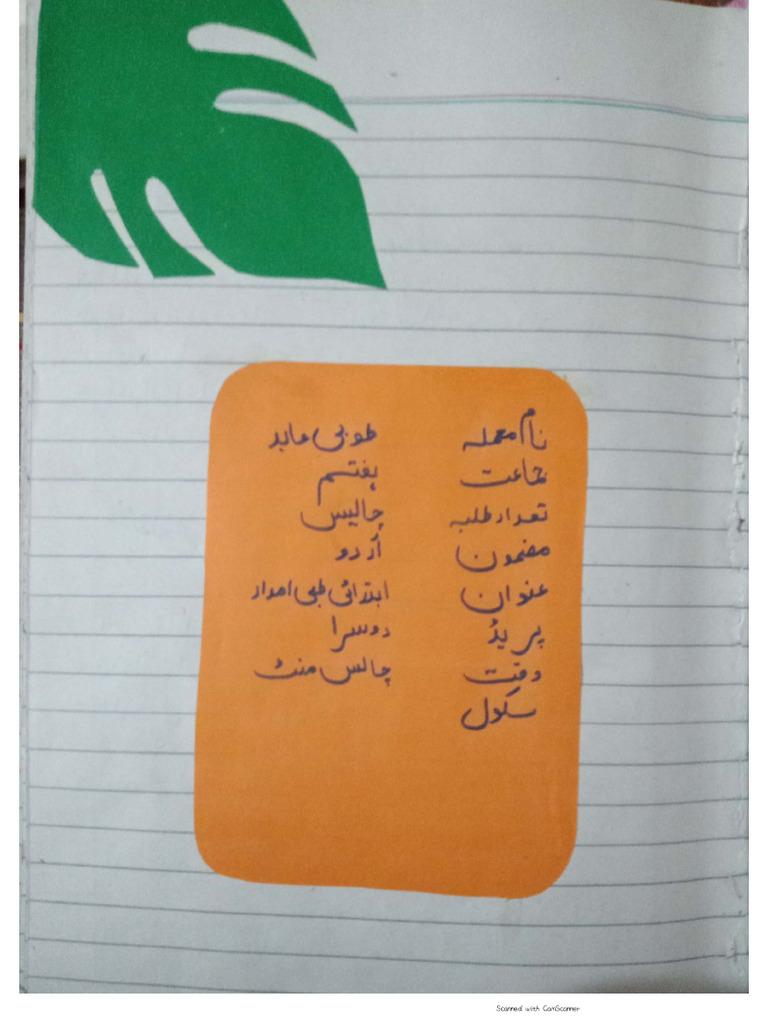 نام معلمہ طوبی عابد
جماعت ہفتسم
تعداد طلبہ چالیس
مضمون اُردو
عنوان ابتدائی طبی امداد
پریڈ دوسرا
وقت چالس منٹ
سکول
Scanned with CamScanner